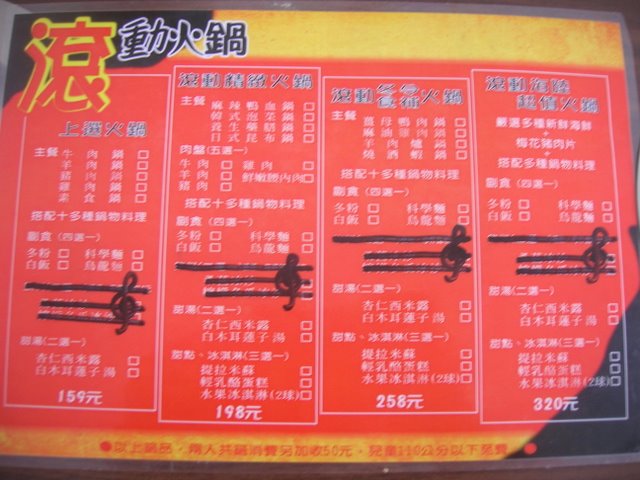 滾動火鍋
上選火鍋
主餐 牛肉鍋□
羊肉鍋□
豬肉鍋□
雞肉鍋□
素食鍋□
搭配十多種鍋物料理
副食(四選一)
多粉□ 科學麵□
白飯□ 烏龍麵□
甜湯(二選一)
杏仁西米露□
白木耳蓮子湯□
159元
滾動精緻火鍋
主餐 麻辣鴨血鍋□
韓式泡菜鍋□
養生藥膳鍋□
日式昆布鍋□
肉盤(五選一)
牛肉□ 雞肉□
羊肉□ 鮮嫩腰內肉□
豬肉□
搭配十多種鍋物料理
副食(四選一)
多粉□ 科學麵□
白飯□ 烏龍麵□
甜湯(二選一)
杏仁西米露□
白木耳蓮子湯□
甜點、冰淇淋(三選一)
提拉米蘇□
輕乳酪蛋糕□
水果冰淇淋(2球)□
198元
滾動冬令食補火鍋
主餐 薑母鴨肉鍋□
麻油雞肉鍋□
羊肉爐鍋□
燒酒蝦鍋□
搭配十多種鍋物料理
副食(四選一)
多粉□ 科學麵□
白飯□ 烏龍麵□
甜湯(二選一)
杏仁西米露□
白木耳蓮子湯□
甜點、冰淇淋(三選一)
提拉米蘇□
輕乳酪蛋糕□
水果冰淇淋(2球)□
258元
滾動海陸
超值火鍋
嚴選多種新鮮海鮮
+
梅花豬肉片
+
搭配多種鍋物料理
副食(四選一)
多粉□ 科學麵□
白飯□ 烏龍麵□
甜湯(二選一)
杏仁西米露□
白木耳蓮子湯□
甜點、冰淇淋(三選一)
提拉米蘇□
輕乳酪蛋糕□
水果冰淇淋(2球)□
320元
●以上鍋品,兩人共鍋消費另加收50元,兒童110公分以下免費 ●